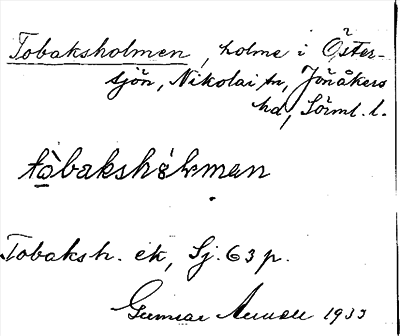 Tobaksholmen, holme i Öster-
sjön, Nikolai sn, Jönåkers
hd, Sörml. l.
tò̱bakshòlmen
Tobaksh. ek, Sj. 63 p.
Gunnar 1933